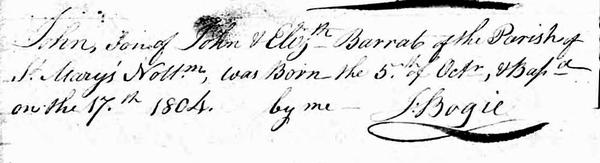 John, son of John & Eliz.th Barrab of the Parish of
St. Mary's Nott.m, was Born the 5.th of Octr, & Bap.d
on the 17.th 1804. by me — J. Bogie